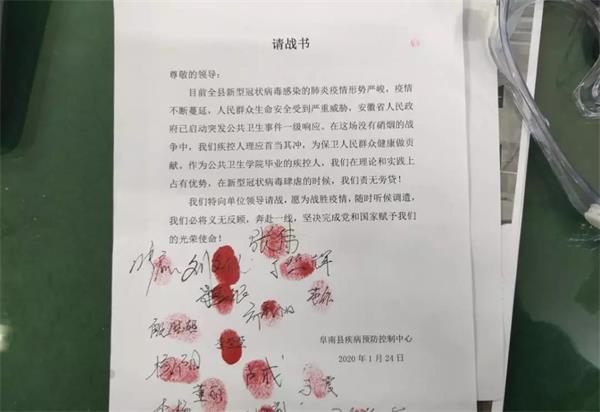 请战书
尊敬的领导：
目前全县新型冠状病毒感染的肺炎疫情形势严峻，疫情
不断蔓延，人民群众生命安全受到严重威胁，安徽省人民政
府已启动突发公共卫生事件一级响应。在这场没有硝烟的战
争中，我们疾控人理应首当其冲，为保卫人民群众健康做贡
献。作为公共卫生学院毕业的疾控人，我们在理论和实践上
占有优势，在新型冠状病毒肆虐的时候，我们责无旁贷！
我们特向单位领导请战，愿为战胜疫情，随时听候调遣，
我们必将义无反顾，奔赴一线，坚决完成党和国家赋予我们
的光荣使命！
阜南县疾病预防控制中心
2020 年 1 月 24 日